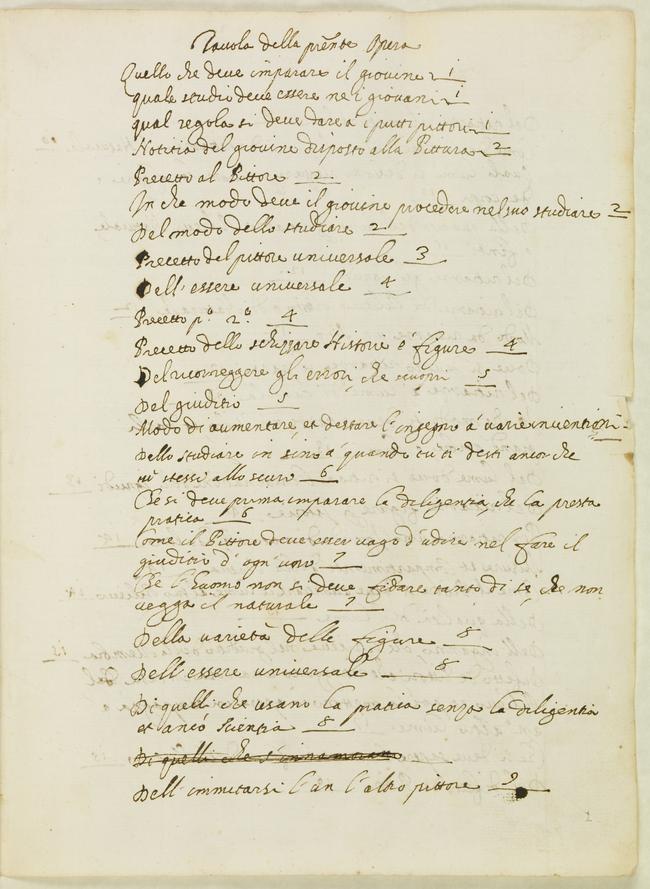 Tavola della prñte Opera
Quello che deve imparare il giovine 1
quale studio deve essere ne i giovani 1
qual regola si deve dare a i putti pittori 1
Notitia del giovine disposto alla Pittura 2
Precetto al Pittore 2
In che modo deve il giovine procedere nel suo studiare 2
Del modo dello studiare 2
Precetto del pittore universale 3
Dell'essere universale 4
Precetto po. 2o. 4
Precetto dello schizzare Historie é figure 4
Del ricorreggere gli errori, che 5
Del giuditio 5
Modo di aumentare, et destare l'ingegno á varie inventioni
Dello studiare in sino á quando tu ti desti ancor che
tu stessi allo scuro 6
Che si deve prima imparare la diligentia, che la presta
pratica 6
Come il Pittore deve esser vago d'udire nel fare il
giuditio d'ogn'uno 7
Che l'huomo non si deve fidare tanto di se, che non
vegga il naturale 7
Della varietà delle figure 8
Dell'essere universale 8
Di quelli che usano la pratica senza la diligentia
et ancó scientia 8
Di quelli che s'innamorano
Dell'immitarsi l'un l'altro pittore 9
1